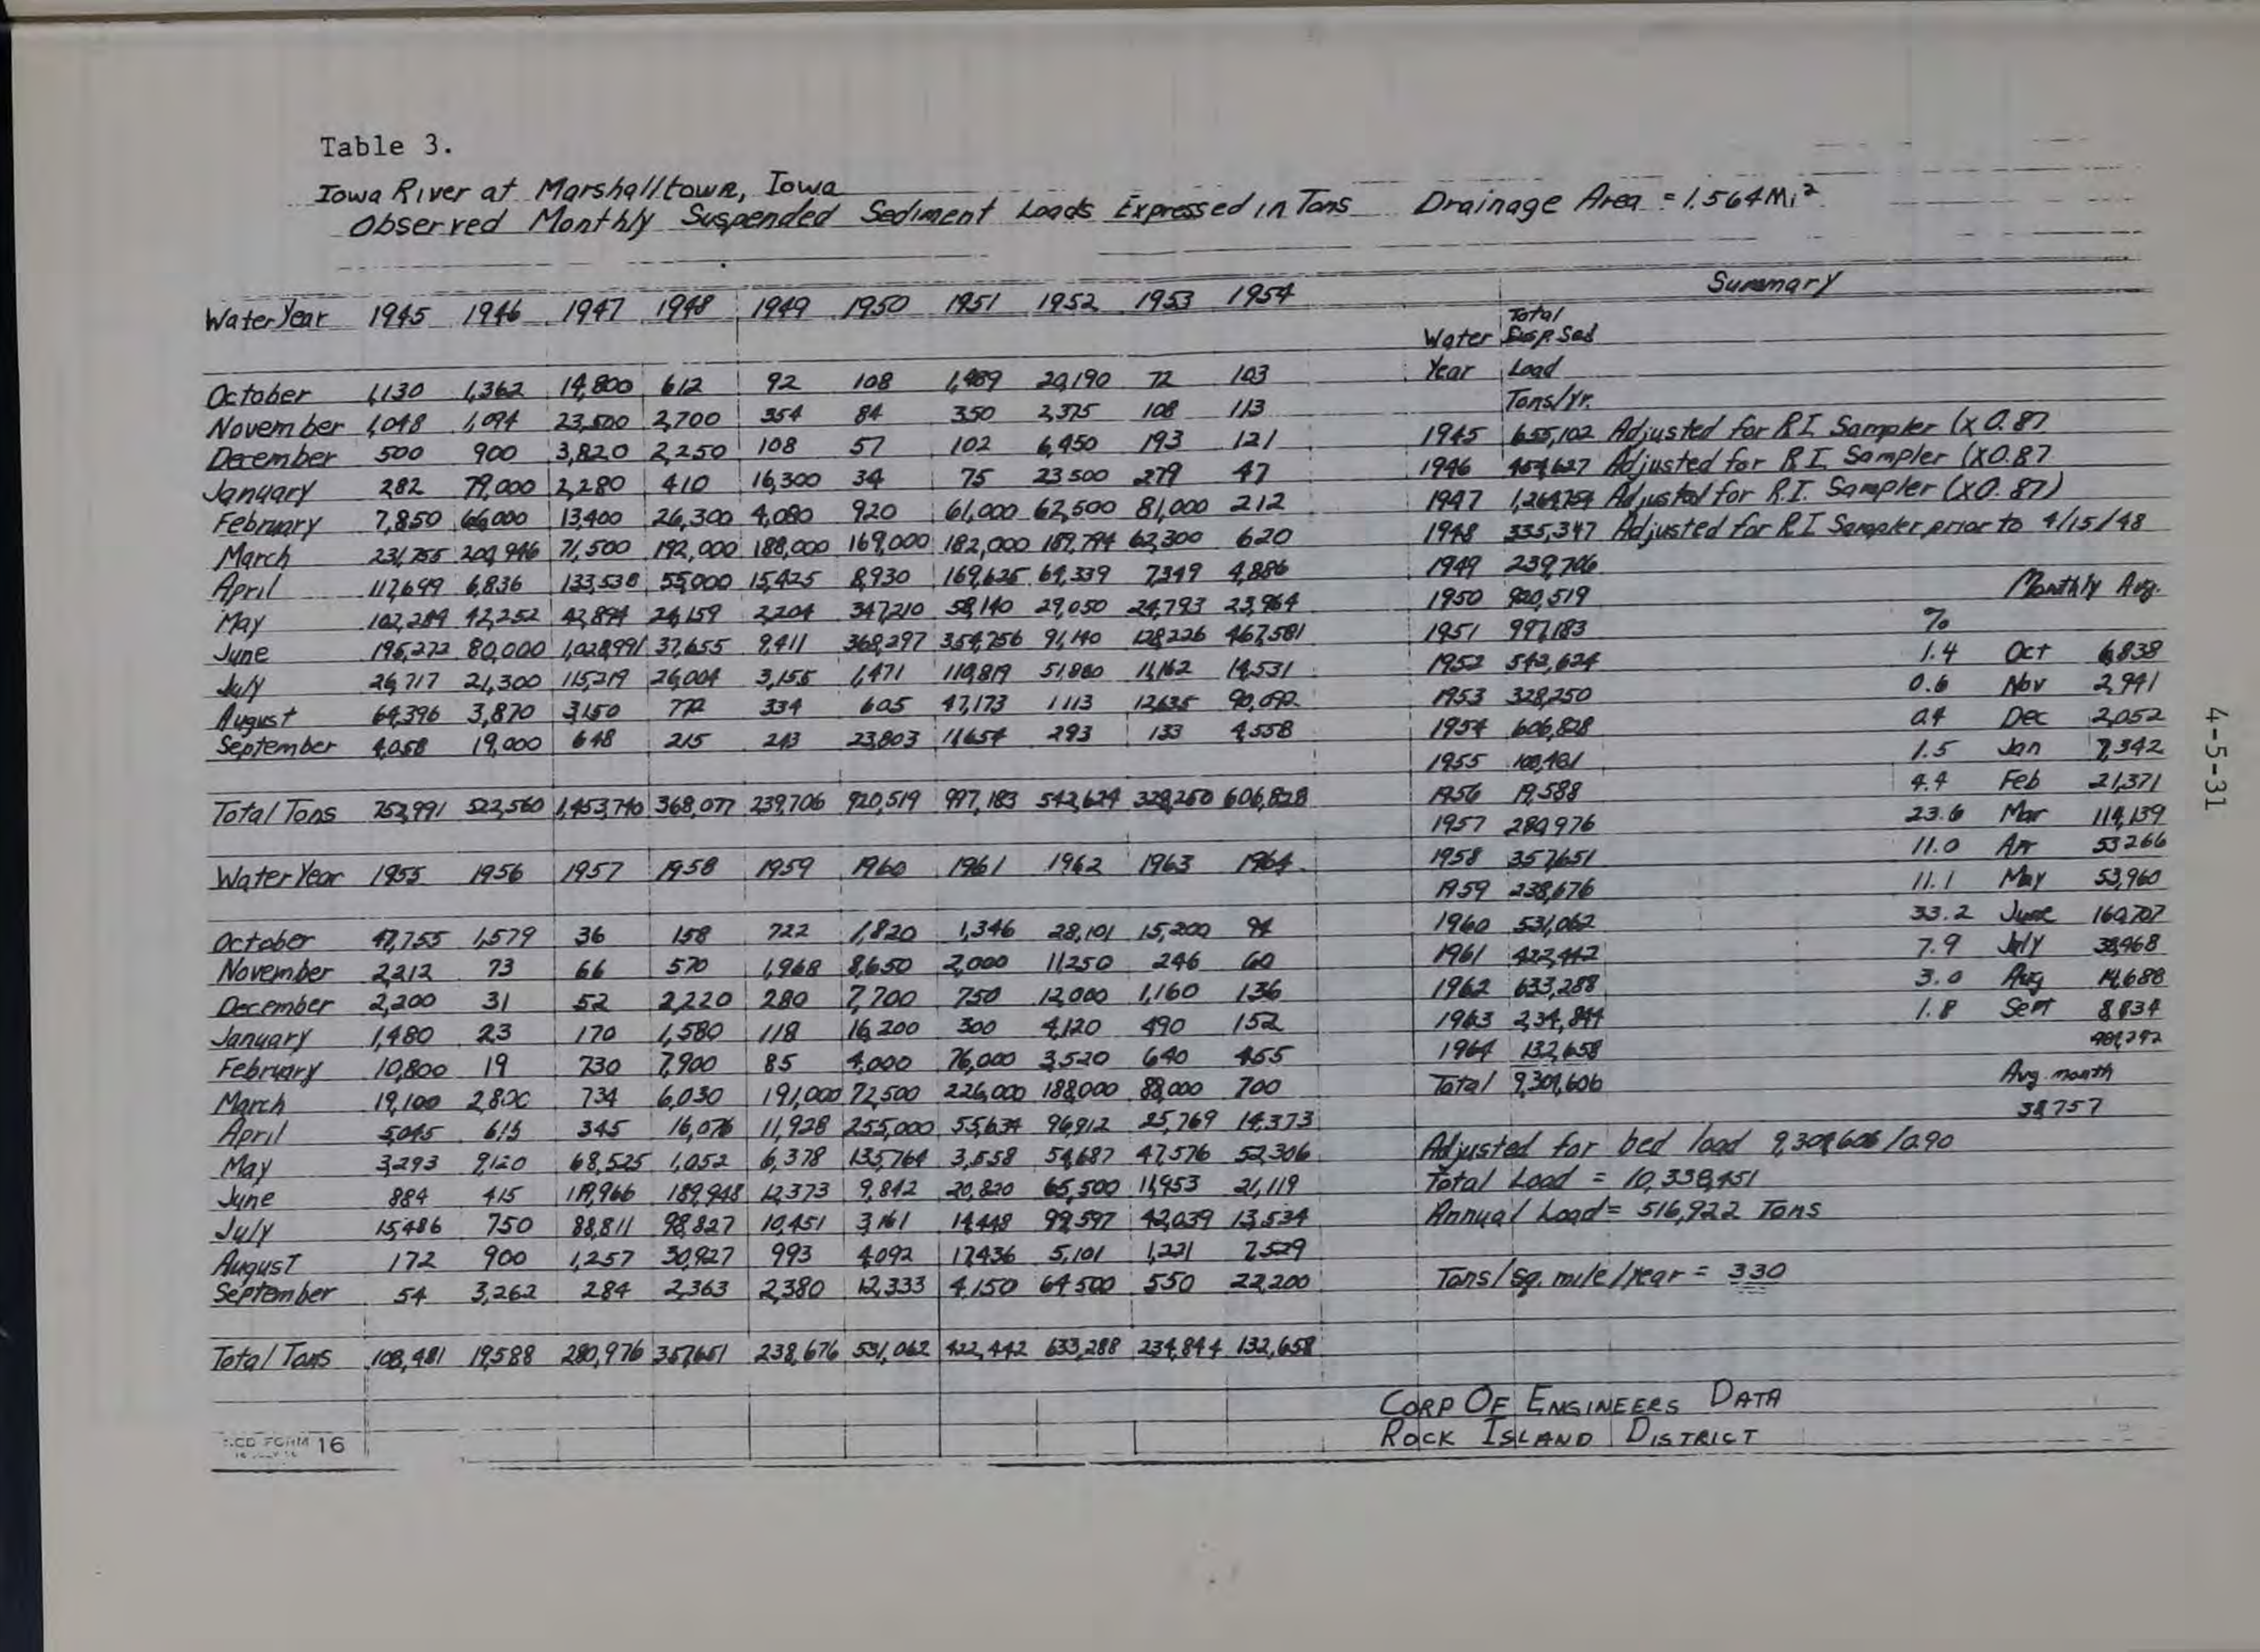 Table 3.
Iowa River at Marshalltown, Iowa
Observed Monthly Suspended Sediment Loads Expressed in Tons Drainage Area = 1.564 Mi²
Summary
Water Year 1945 1946 1947 1948 1949 1950 1951 1952 1953 1954
October 1,130 1,362 14,800 612 92 108 1,489 20,190 72 103
November 1,048 1,094 23,500 2,700 354 84 350 2,375 108 113
December 500 900 3,820 2,250 108 57 102 6,450 193 121
January 282 79,000 2,280 410 16,300 34 75 23 500 279 47
February 7,850 66,000 13,400 26,300 4,080 920 61,000 62,500 81,000 212
March 231,755 200,946 71,500 192,000 188,000 169,000 182,000 189,794 62,300 620
April 117,699 6,836 133,538 55,000 15,425 8,930 169,625 64,339 7,349 4,886
May 102,284 42,252 42,894 24,159 2,204 347,210 58,140 29,050 24,793 23,964
June 195,272 80,000 1,028,991 37,655 9,411 368,297 354,756 91,140 128,226 467,581
July 26,717 21,300 115,219 26,004 3,155 1,471 110,819 51,880 11,162 14,531
August 64,396 3,870 3,150 772 334 605 47,173 1 113 12,635 90,092
September 4,058 19,000 648 215 243 23,803 11,654 293 133 4,558
Total Tons 752,991 522,560 1,453,740 368,077 239,706 920,519 997,183 542,624 328,250 606,828
Water Year 1955 1956 1957 1958 1959 1960 1961 1962 1963 1964
October 47,755 1,579 36 158 722 1,820 1,346 28,101 15,200 94
November 2,212 73 66 570 1,968 8,650 2,000 11,250 246 60
December 2,200 31 52 2,220 280 7,700 750 12,000 1,160 136
January 1,480 23 170 1,580 118 16,200 300 4,120 490 152
February 10,800 19 730 7,900 85 4,000 76,000 3,520 640 455
March 19,100 2,800 734 6,030 191,000 72,500 226,000 188,000 88,000 700
April 5,045 615 345 16,076 11,928 255,000 55,634 96,912 25,769 14,373
May 3,293 9,120 68,525 1,052 6,378 135,764 3,558 54,687 47,576 52,306
June 884 415 119,966 189,948 12,373 9,842 20,820 65,500 11,953 21,119
July 15,486 750 88,811 98,827 10,451 3,161 14,448 99,597 42,039 13,534
August 172 900 1,257 30,927 993 4,092 17,436 5,101 1,221 7,529
September 54 3,262 284 2,363 2,380 12,333 4,150 64,500 550 22,200
Total Tons 108,481 19,588 280,976 357,651 238,676 531,062 422,442 633,288 234,844 132,658
Water Year Total Susp Sed Load Tons/Yr.
1945 655,102 Adjusted for R.I. Sampler (x 0.87
1946 454,627 Adjusted for R.I. Sampler (x0.87
1947 1,264,754 Adjusted for R.I. Sampler (x0.87)
1948 335,347 Adjusted for R.I. Sampler prior to 4/15/48
1949 239,706
1950 920,519
1951 997,183
1952 542,624
1953 328,250
1954 606,828
1955 108,481
1956 19,588
1957 280,976
1958 357,651
1959 238,676
1960 531,062
1961 422,442
1962 633,288
1963 234,844
1964 132,658
Total 9,304,606
% Monthly Avg.
1.4 Oct 6,838
0.6 Nov 2,941
0.4 Dec 2,052
1.5 Jan 7,342
4.4 Feb 21,371
23.6 Mar 114,139
11.0 Apr 53 266
11.1 May 53,960
33.2 June 160,707
7.9 July 38,468
3.0 Aug 14,688
1.8 Sept 8,834
Avg. month
38,757
Adjusted for bed load 9,304,606 / 0.90
Total Load = 10,338,451
Annual Load = 516,922 Tons
Tons/sq. mile/year = 330
CORP OF ENGINEERS DATA
ROCK ISLAND DISTRICT
FORM 16
4-5-31